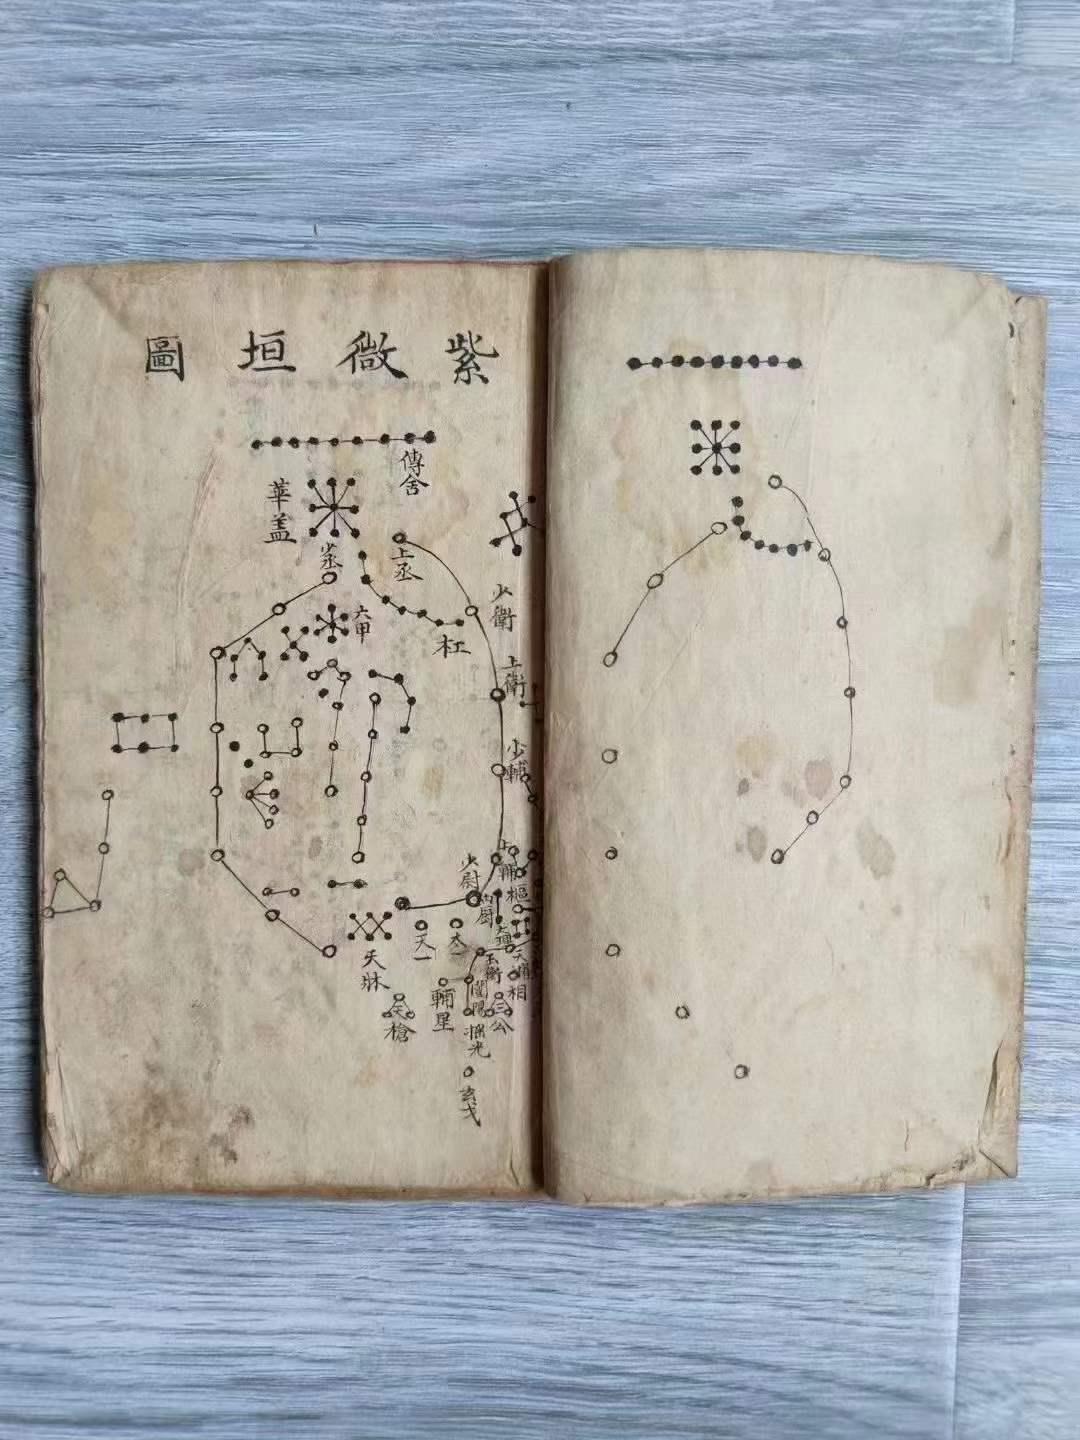 紫微垣圖
傳舍
華盖
上丞
少丞
少衛
六甲
杠
上衛
少輔
上輔
少尉
內厨
樞
天一
太一
天牀
玉衡
相
輔星
開陽
三公
天槍
搖光
玄戈